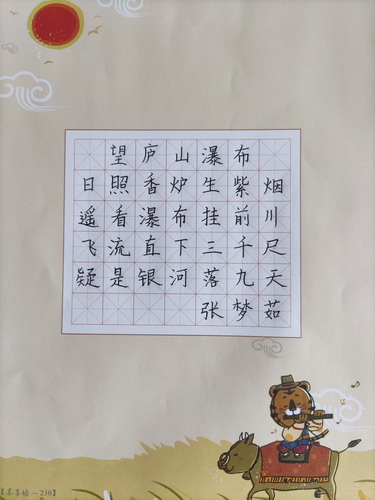 望庐山瀑布
日照香炉生紫烟
遥看瀑布挂前川
飞流直下三千尺
疑是银河落九天
张梦茹